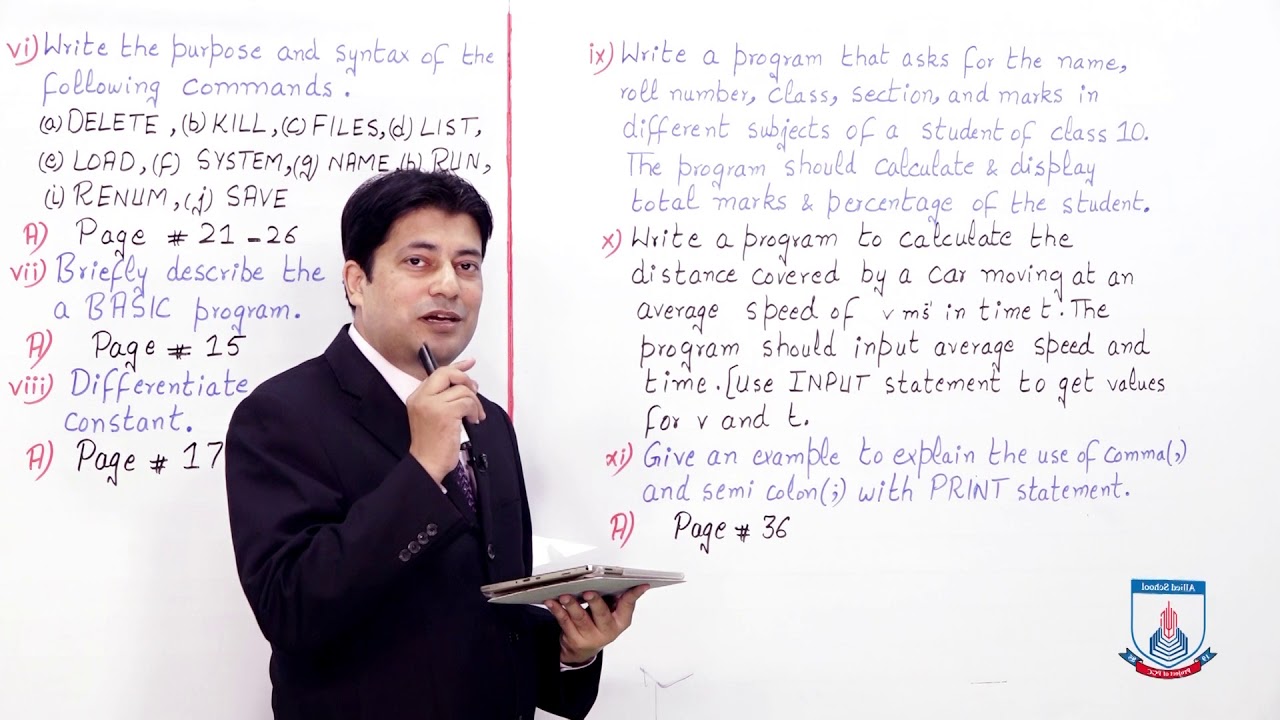 vi) Write the purpose and syntax of the
following commands.
(a) DELETE, (b) KILL, (c) FILES, (d) LIST,
(e) LOAD, (f) SYSTEM, (g) NAME, (h) RUN,
(i) RENUM, (j) SAVE
A) Page # 21-26
vii) Briefly describe the
a BASIC program.
A) Page # 15
viii) Differentiate
constant.
A) Page # 17
ix) Write a program that asks for the name,
roll number, class, section, and marks in
different subjects of a student of class 10.
The program should calculate & display
total marks & percentage of the student.
x) Write a program to calculate the
distance covered by a car moving at an
average speed of v ms⁻¹ in time t. The
program should input average speed and
time. [Use INPUT statement to get values
for v and t.
xi) Give an example to explain the use of comma(,)
and semi colon(;) with PRINT statement.
A) Page # 36
Allied School
Project of PGC